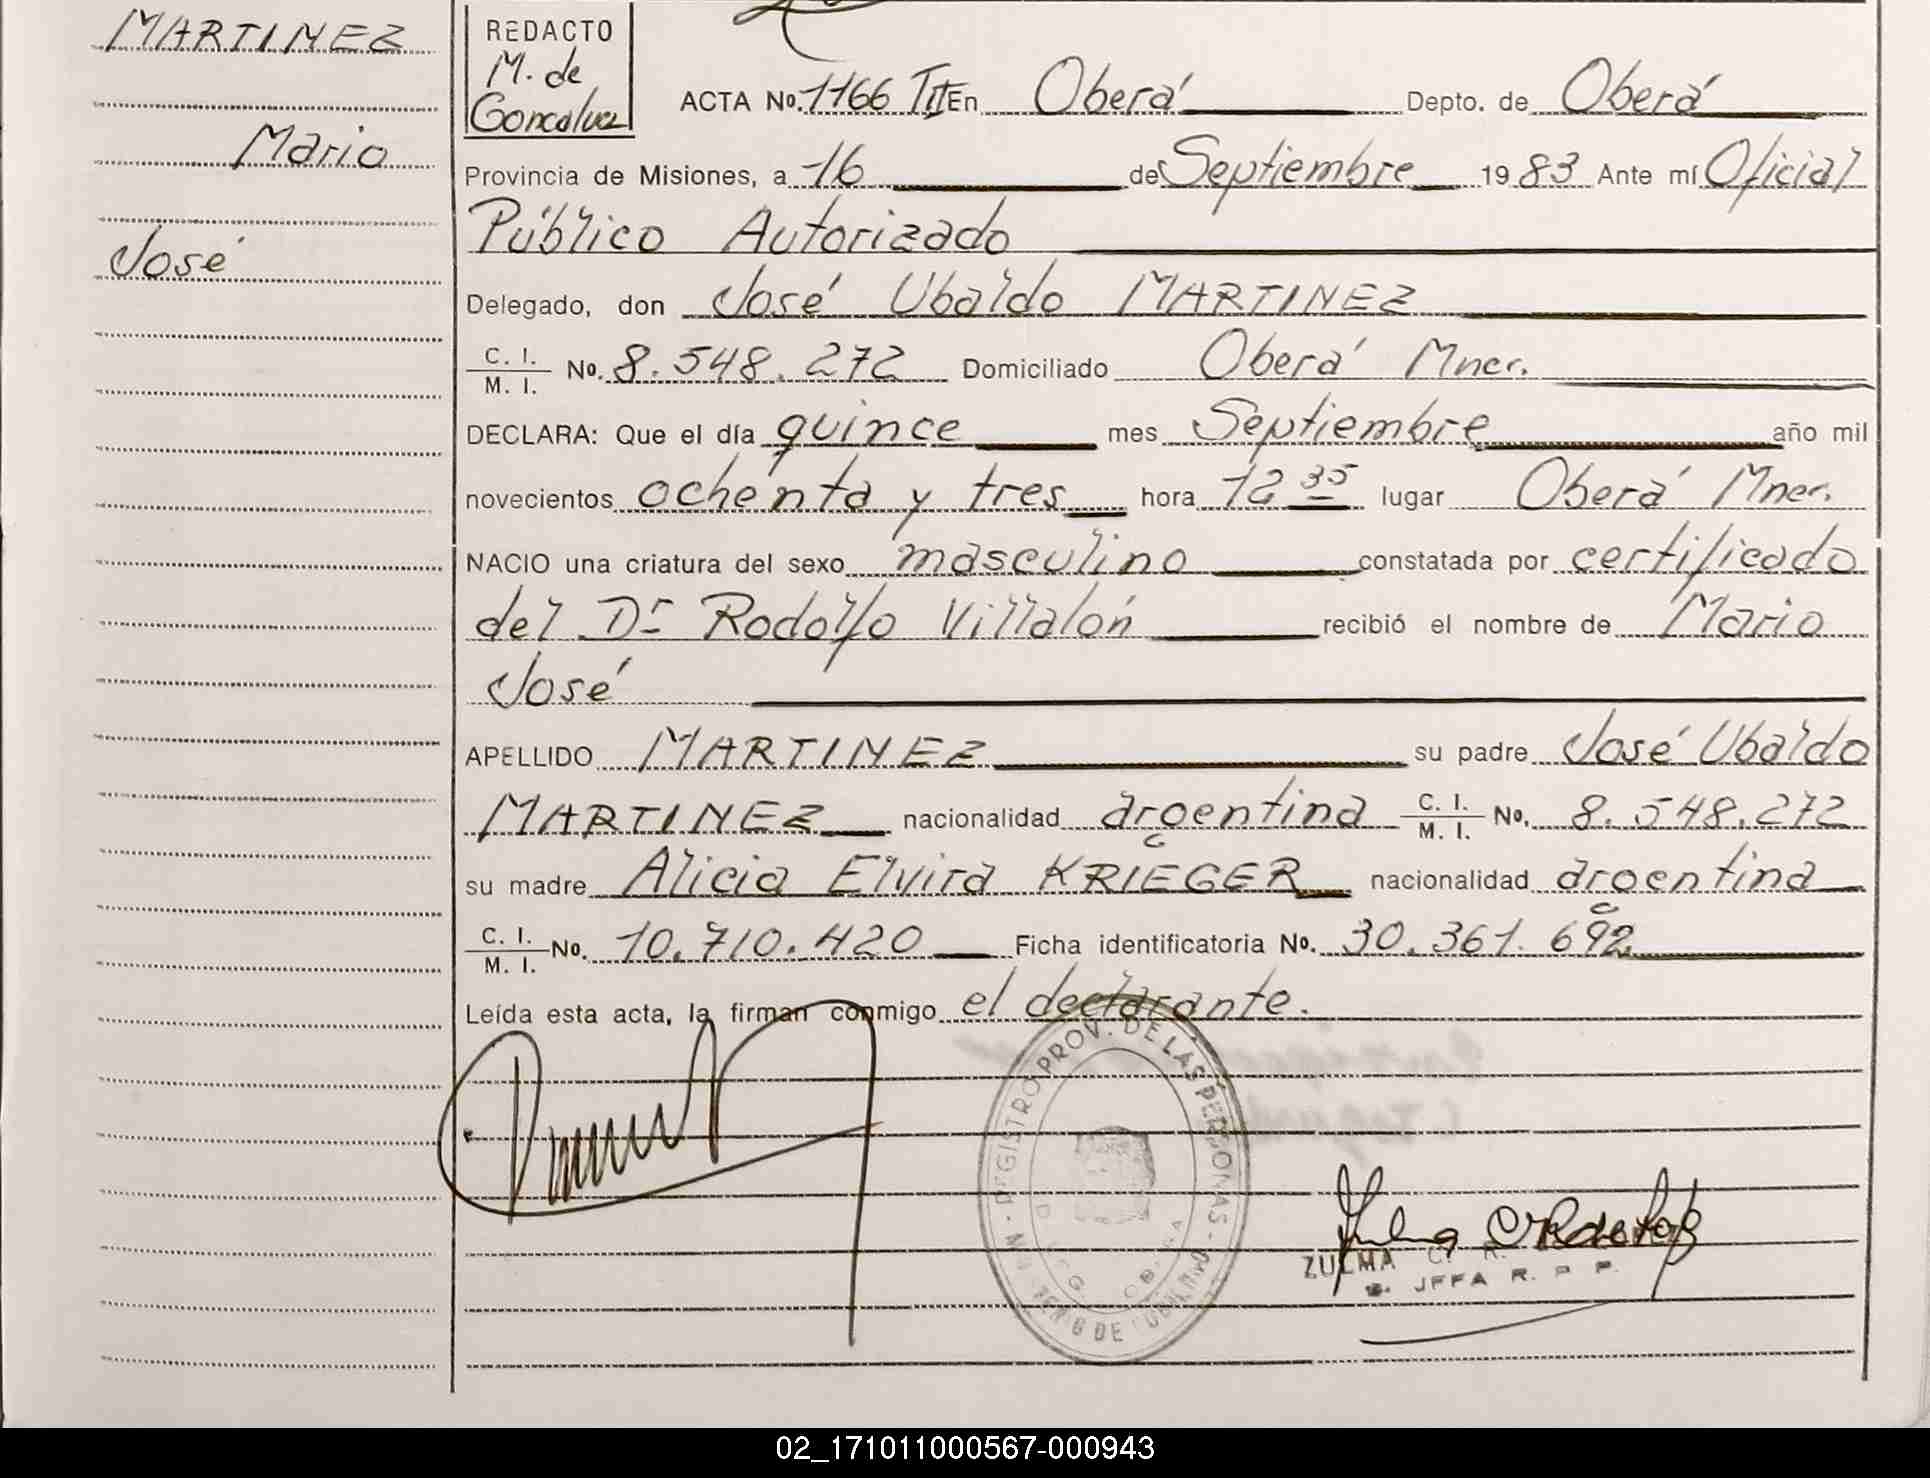 MARTINEZ
Mario
José
REDACTO
M. de
Goncalvez
ACTA No. 1166 TII En Oberá Depto. de Oberá
Provincia de Misiones, a 16 de Septiembre 1983 Ante mí Oficial
Público Autorizado
Delegado, don José Ubaldo MARTINEZ
C. I.
M. I. No. 8.548.272 Domiciliado Oberá Mnes.
DECLARA: Que el día quince mes Septiembre año mil
novecientos ochenta y tres hora 12 35 lugar Oberá Mnes.
NACIO una criatura del sexo masculino constatada por certificado
del Dr Rodolfo Villalón recibió el nombre de Mario
José
APELLIDO MARTINEZ su padre José Ubaldo
MARTINEZ nacionalidad argentina C. I. M. I. No. 8.548.272
su madre Alicia Elvira KRIEGER nacionalidad argentina
C. I.
M. I. No. 10.710.420 Ficha identificatoria No. 30.361.692
Leída esta acta, la firman conmigo el declarante.
REGISTRO PROV. DE LAS PERSONAS
ZULMA
JEFA R. P. P.
02_171011000567-000943